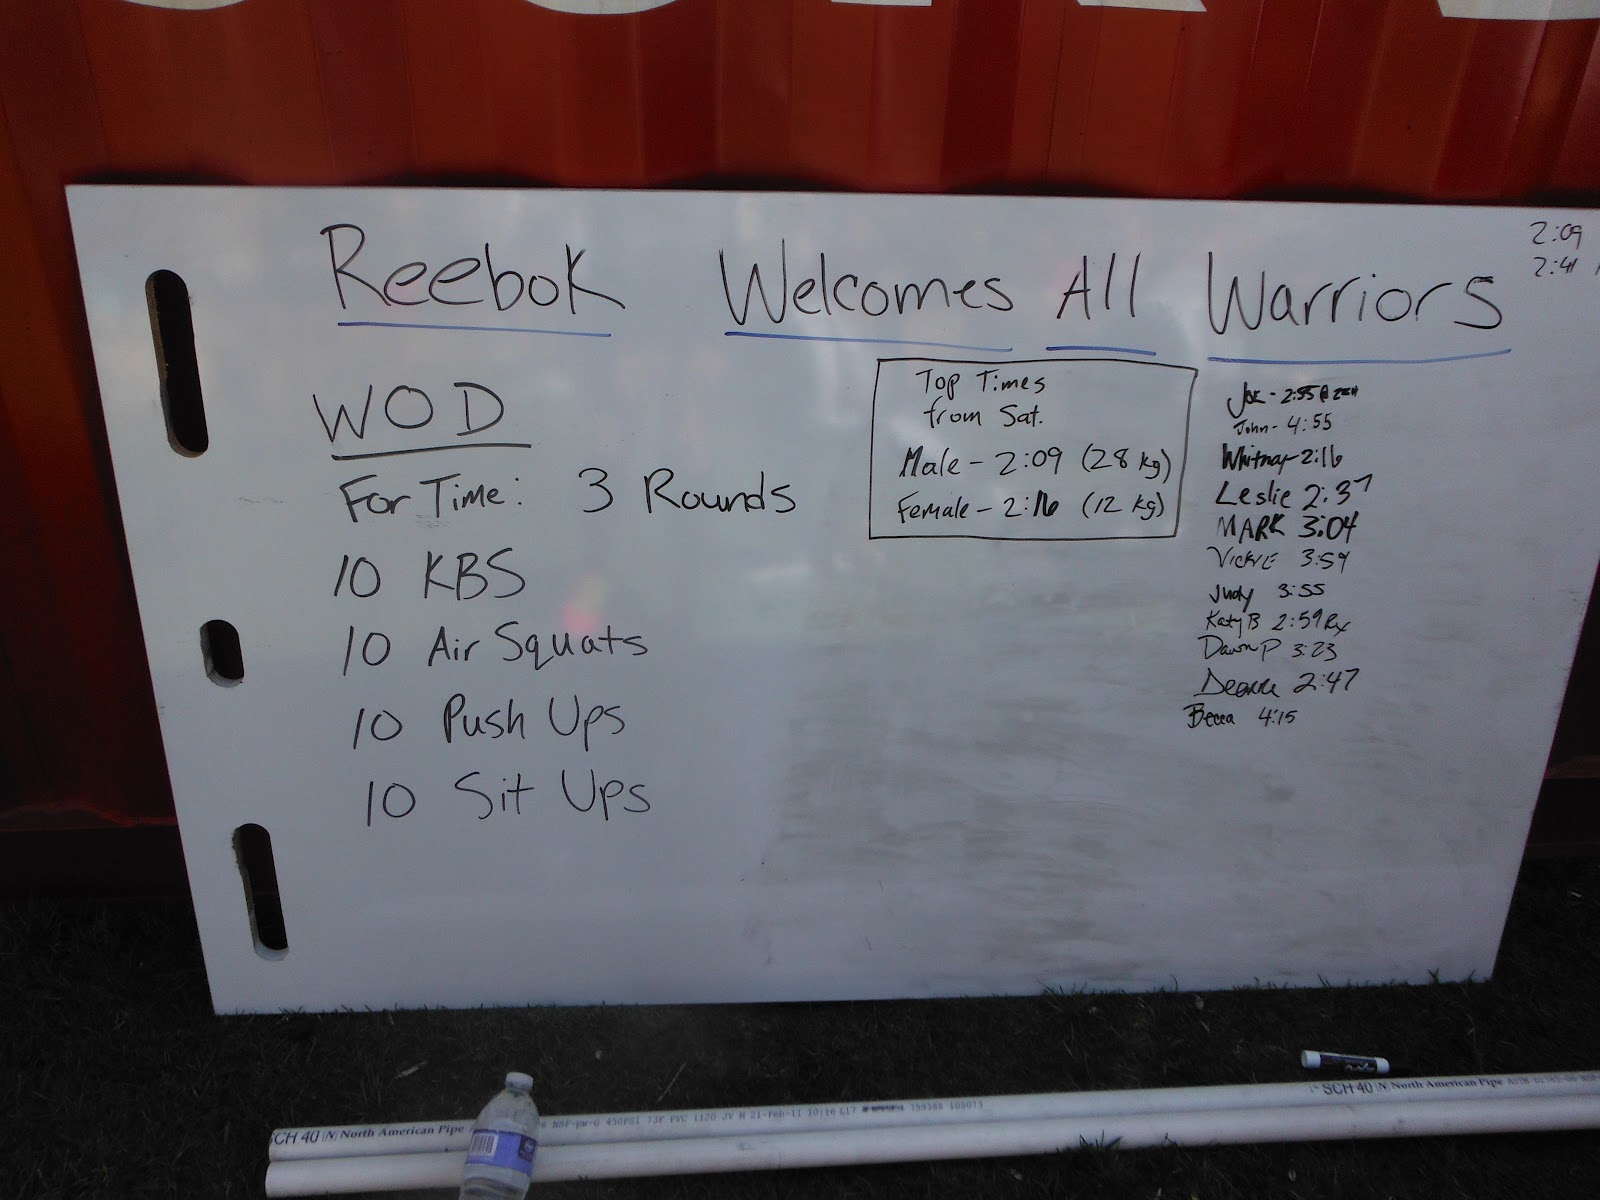 Reebok Welcomes All Warriors
2:09
2:41
WOD
For Time: 3 Rounds
10 KBS
10 Air Squats
10 Push Ups
10 Sit Ups
Top Times
from Sat.
Male - 2:09 (28 kg)
Female - 2:16 (12 kg)
Joe - 2:55 @
John - 4:55
Whitney 2:16
Leslie 2:37
MARK 3:04
Vickie 3:59
Judy 3:55
Katy B 2:59 Rx
Dawn P 3:23
2:47
Becca 4:15
SCH 40 (N) North American Pipe
450PSI 73F PVC 1120 JV M 21-Feb-11 10:16
SCH 40 (N) North American Pipe